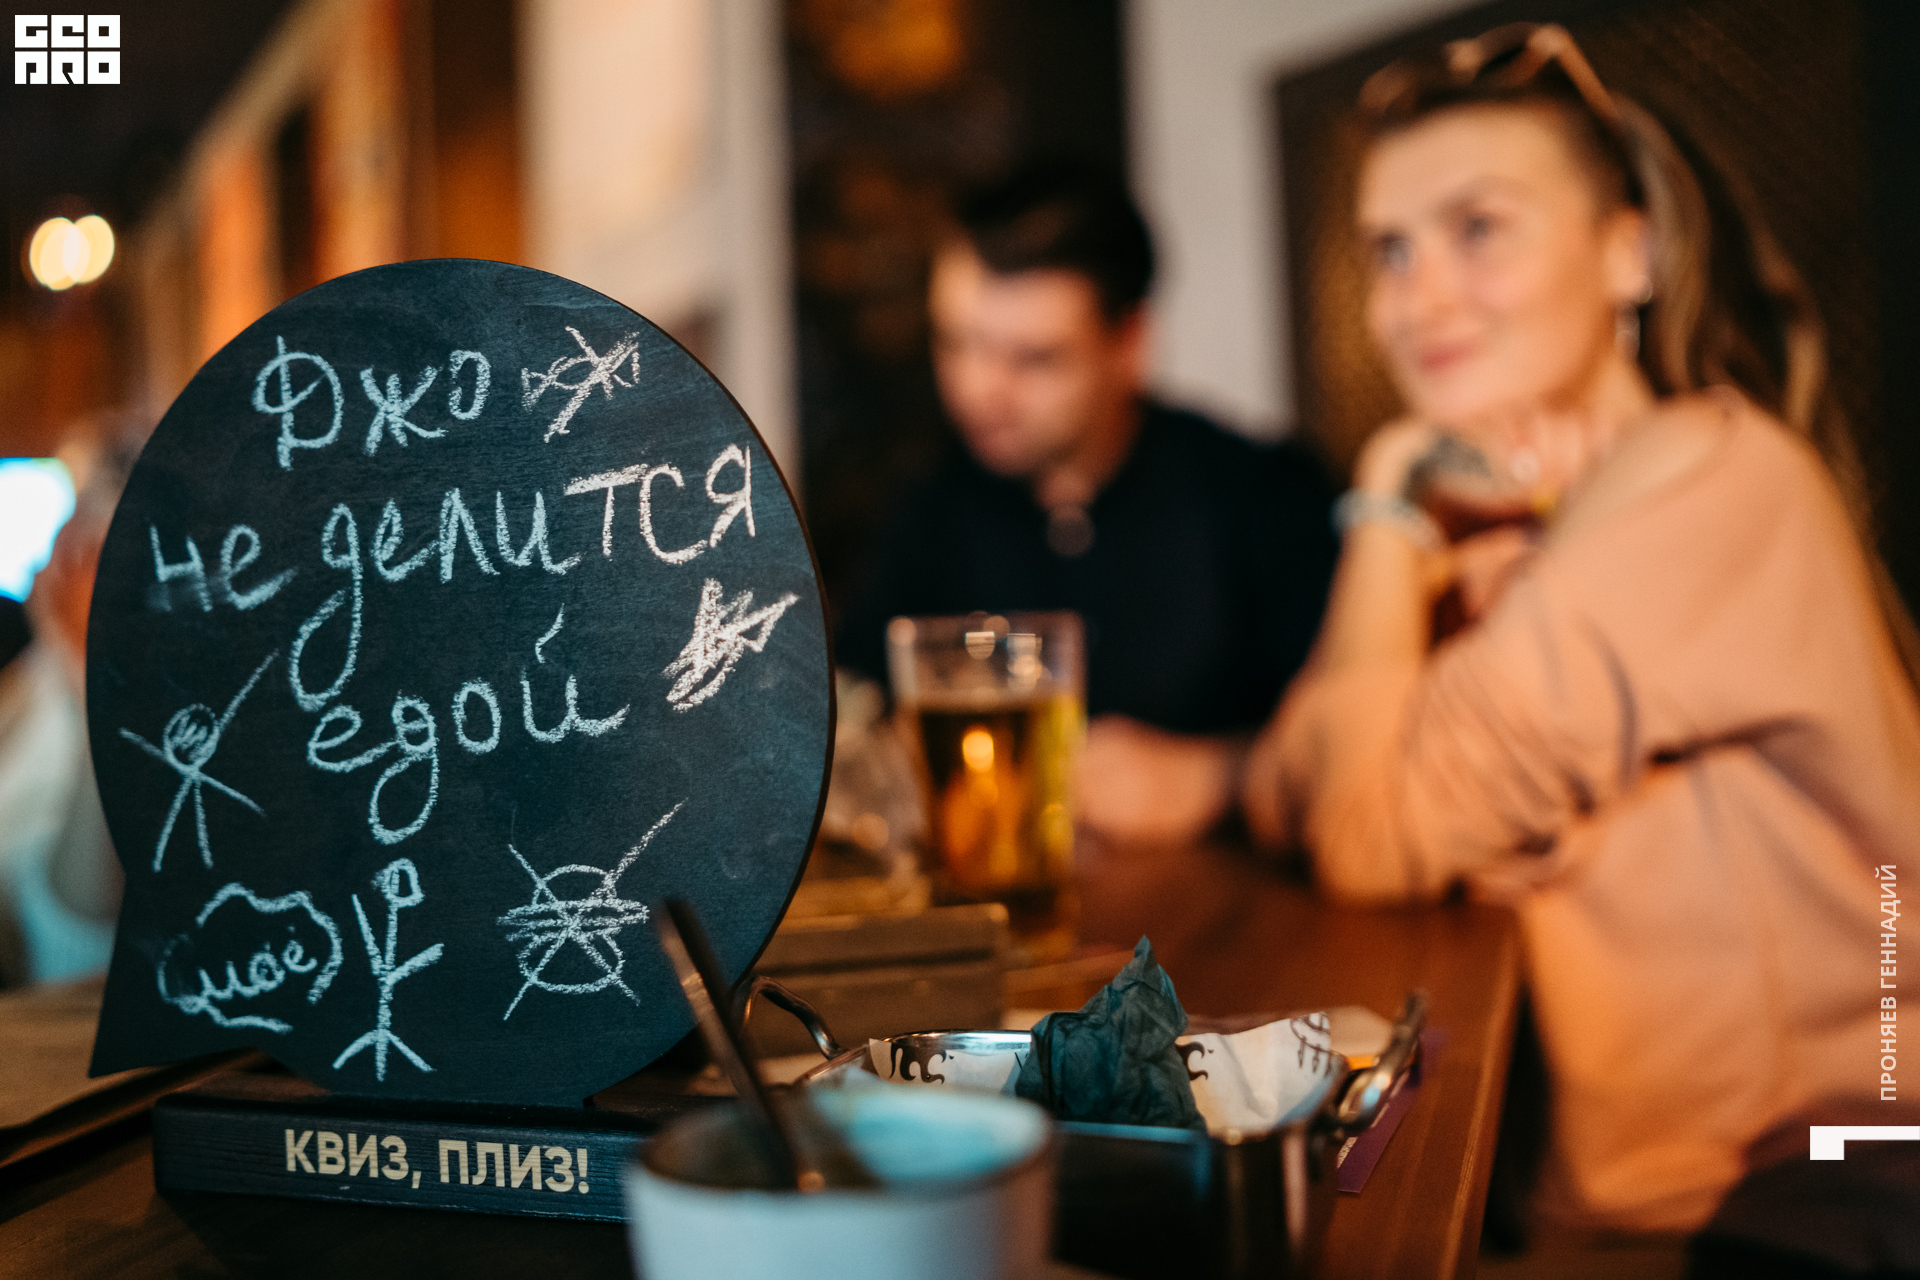 GEO
PRO
Джо
не делится
едой
моё
КВИЗ, ПЛИЗ!
ПРОНЯЕВ ГЕННАДИЙ